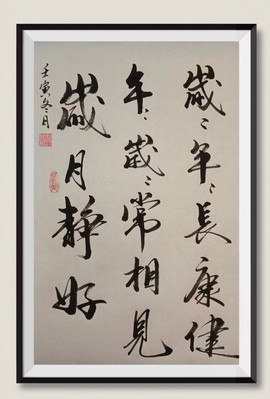 歲〻年〻長康健
年〻歲〻常相見
歲月靜好
壬寅冬月